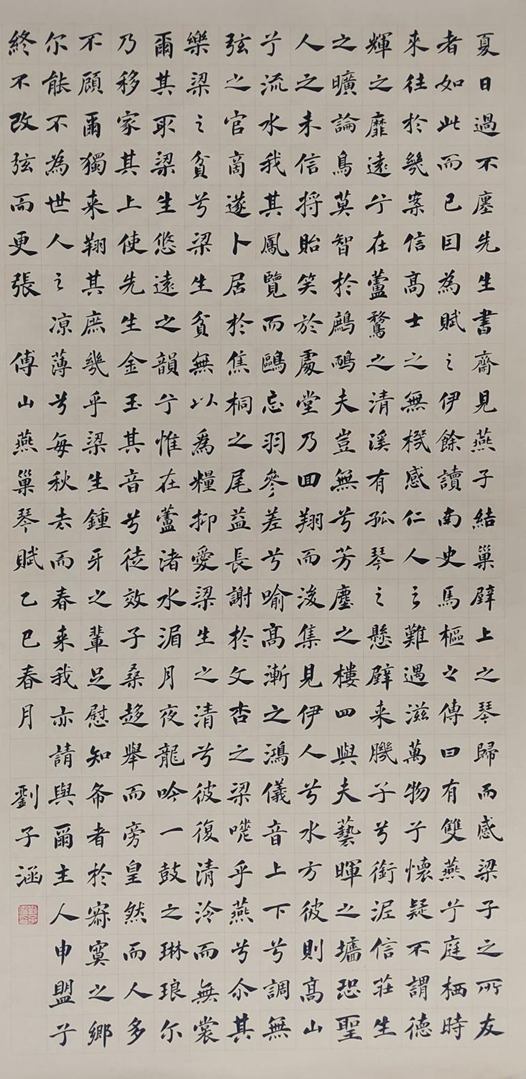 夏日過不塵先生書齋見燕子結巢壁上之琴歸而感梁子之所友
者如此而已因為賦之伊餘讀南史馬樞之傳曰有雙燕兮庭栖時
來往於幾案信高士之無機感仁人之難遇滋萬物兮懷疑不謂德
輝之靡遠兮在蘆鶩之清溪有孤琴之懸壁來子兮銜泥信莊生
之曠論鳥莫智於鷾鴯夫豈無兮芳塵之樓四與夫藝暉之壖恐聖
人之未信將貽笑於處堂乃回翔而浚集見伊人兮水方彼則高山
兮流水我其鳳覽而鷗忘羽參差兮喻高漸之鴻儀音上下兮調無
弦之官商遂卜居於焦桐之尾益長謝於文杏之梁嗟乎燕兮尒其
樂梁之貧兮梁生貧無以為糧抑愛梁生之清兮彼復清泠而無裳
爾其取梁生悠遠之韻兮惟在蘆渚水湄月夜龍吟一鼓之琳琅尔
乃移家其上使先生金玉其音兮徒效子桑趍舉而旁皇然而人多
不顧爾獨來翔其庶幾乎梁生鍾牙之輩足慰知希者於寂寞之鄉
尔能不為世人之涼薄兮每秋去而春來我亦請與爾主人申盟兮
終不改弦而更張 傅山燕巢琴賦乙巳春月 劉子涵